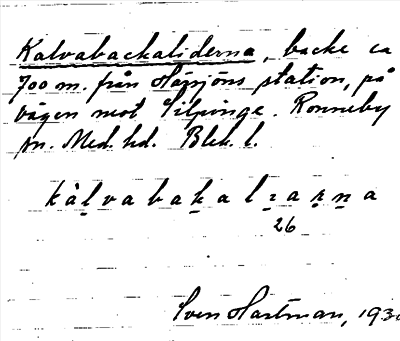 Kalvabackaliderna, backe ca
700 m. från Härsjöns station, på
vägen mot Silpinge. Ronneby
sn. Med. hd. Blek. l.
kàlvabakalɪaṛṇa
26
Sven Hartman, 193